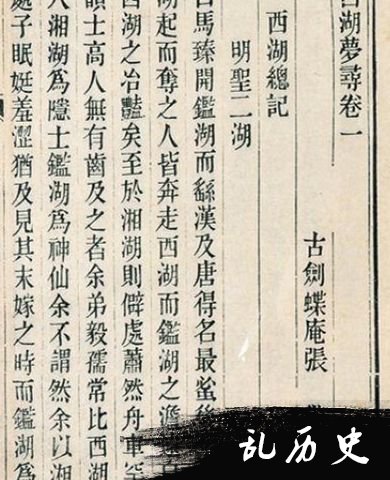 西湖夢尋卷一
古劍蝶庵張
西湖總記
明聖二湖
自馬臻開鑑湖而繇漢及唐得名最蚤後
湖起而奪之人皆奔走西湖而鑑湖之澹
西湖之冶豔矣至於湘湖則僻處蕭然舟車罕
韻士高人無有齒及之者余弟毅孺常比西湖
人湘湖爲隱士鑑湖爲神仙余不謂然余以湘
處子眠娗羞澀猶及見其未嫁之時而鑑湖爲
乱历史